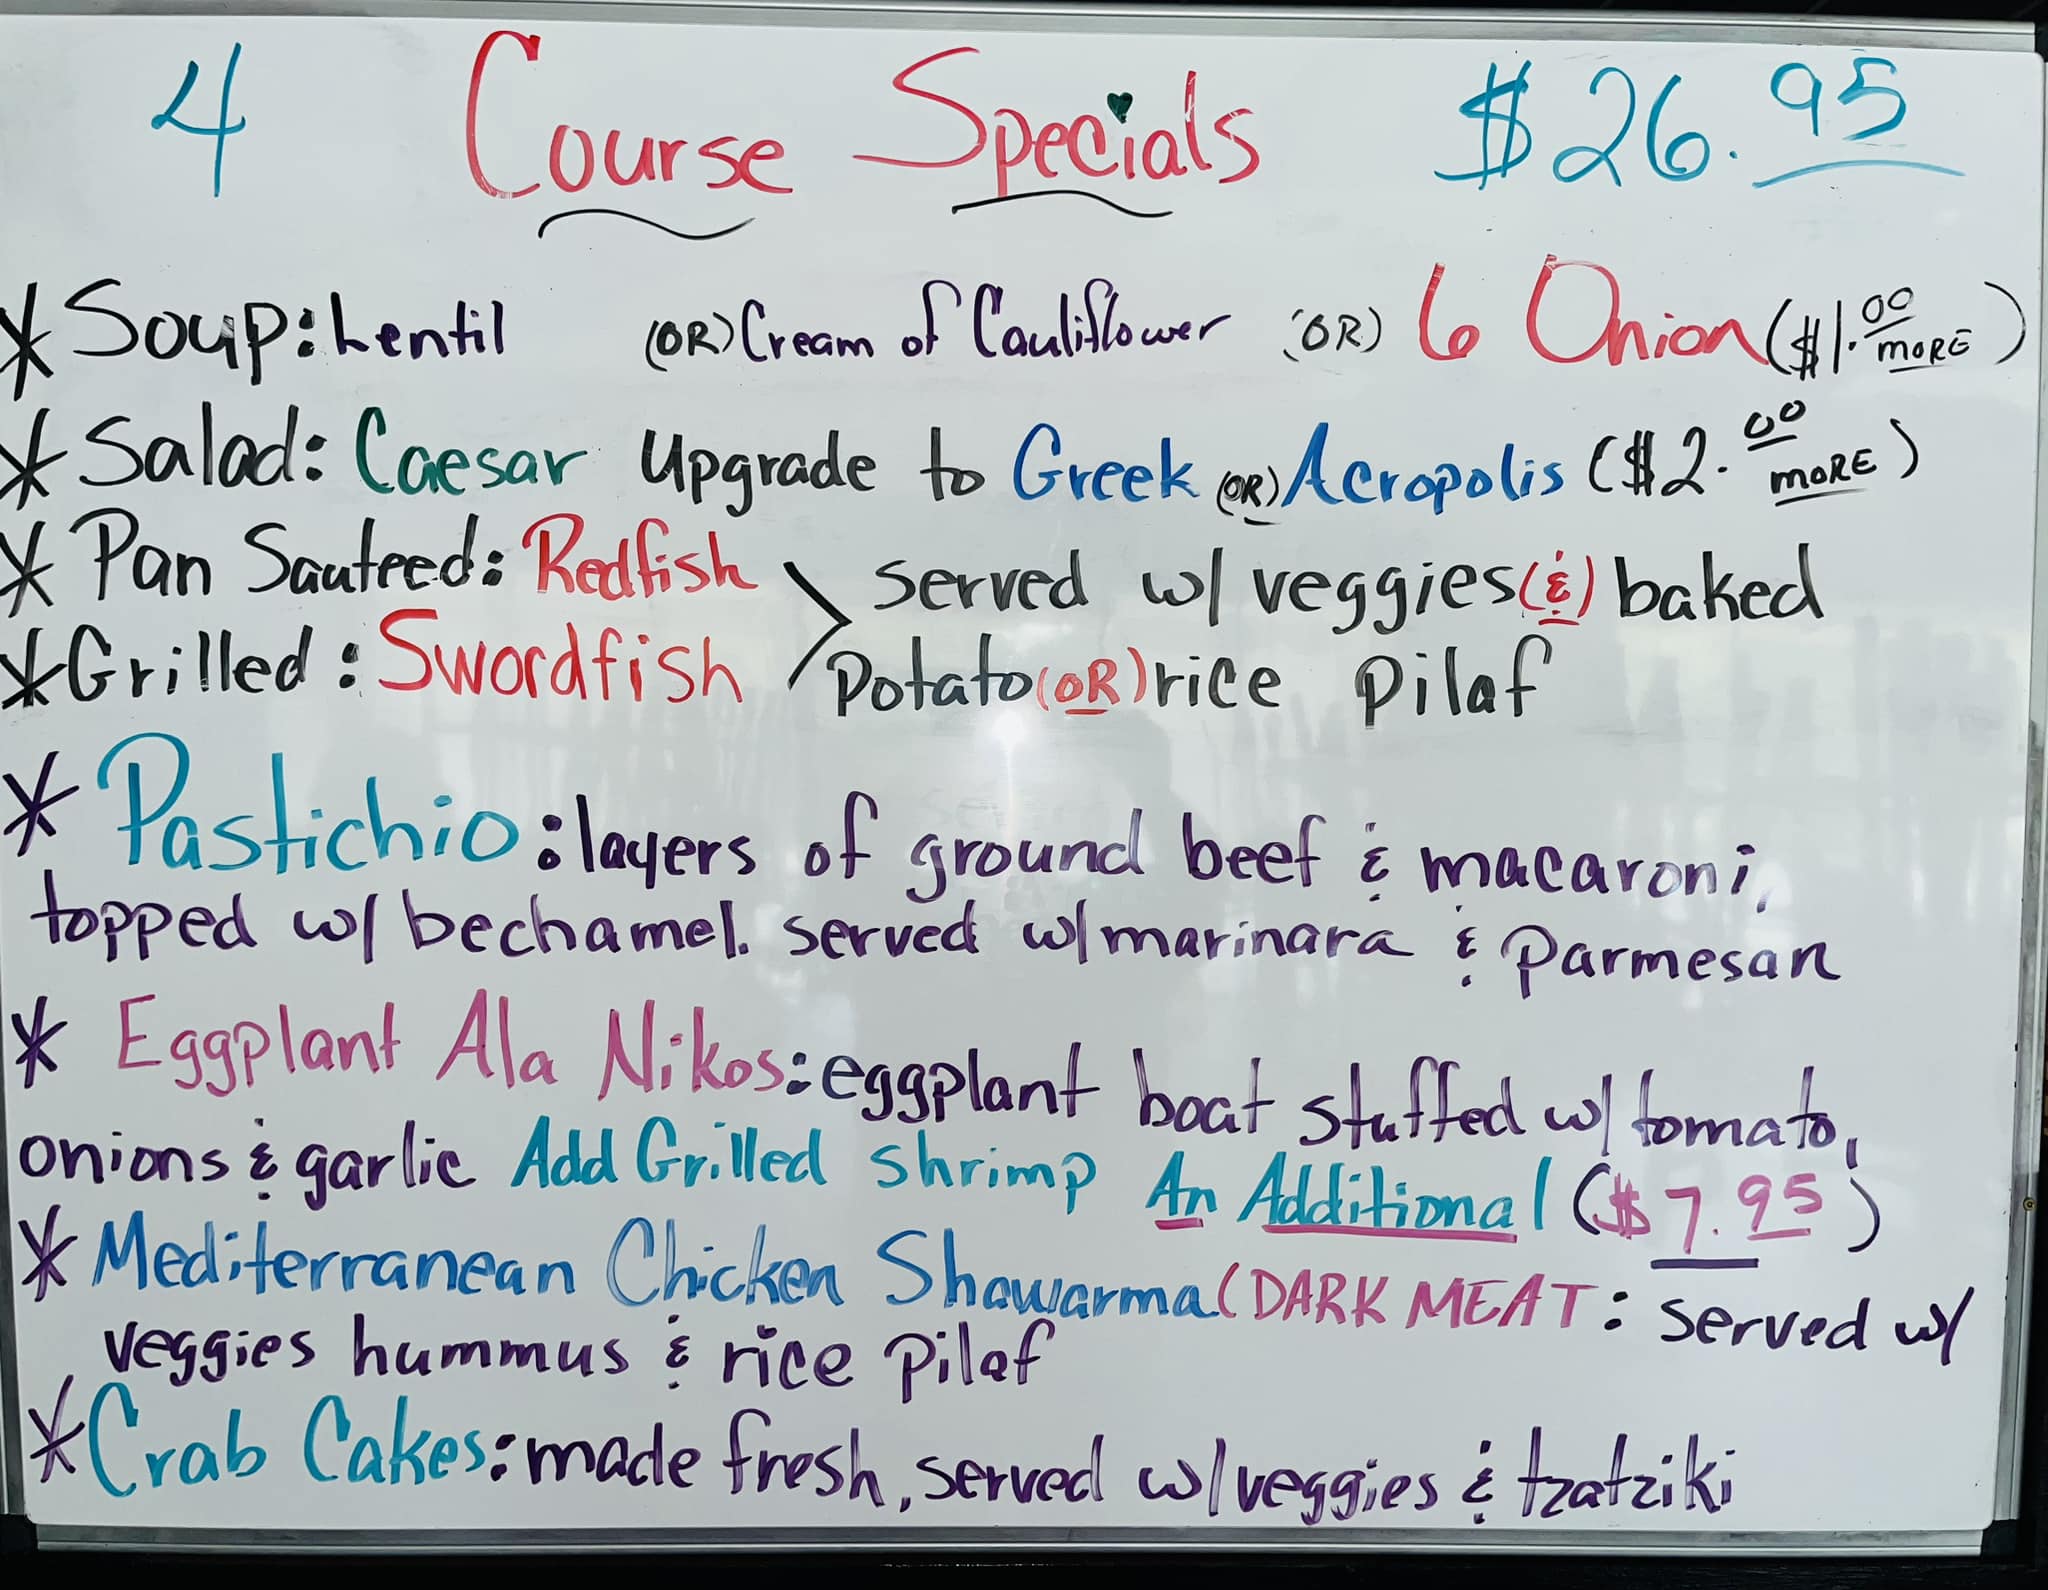 4 Course Specials $26.95
* Soup: Lentil (OR) Cream of Cauliflower (OR) 6 Onion ($1.00 MORE)
* Salad: Caesar Upgrade to Greek (OR) Acropolis ($2.00 MORE)
* Pan Sauteed: Redfish > served w/ veggies (&) baked
* Grilled: Swordfish potato (OR) rice pilaf
* Pastichio: layers of ground beef & macaroni,
topped w/ bechamel. served w/ marinara & parmesan
* Eggplant Ala Nikos: eggplant boat stuffed w/ tomato,
onions & garlic Add Grilled shrimp An Additional ($7.95)
* Mediterranean Chicken Shawarma (DARK MEAT: served w/
veggies hummus & rice pilaf
* Crab Cakes: made fresh, served w/ veggies & tzatziki